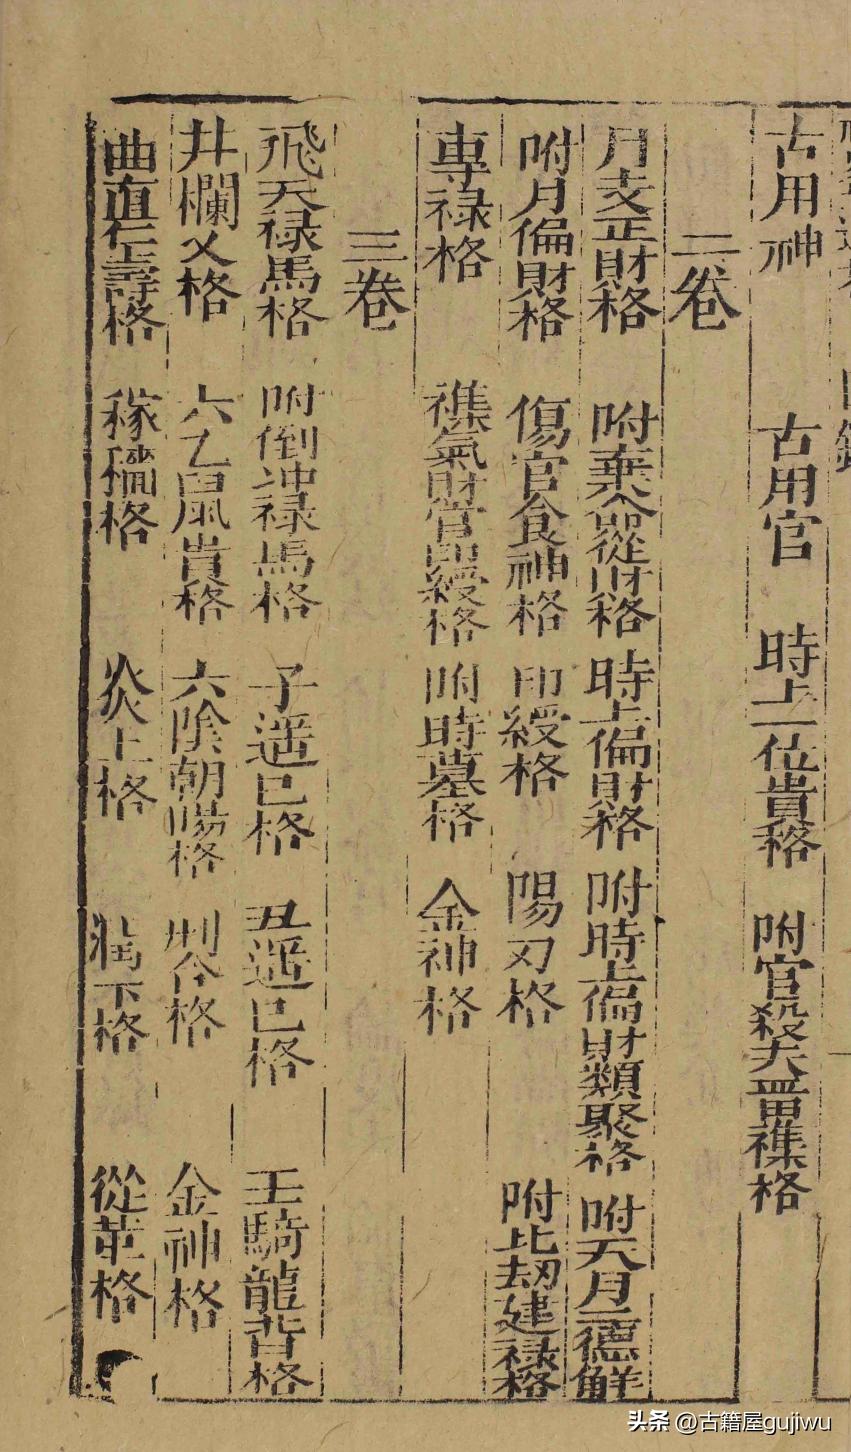 古用神 古用官 時上一位貴格 附官殺去畱襍格
二卷
月支正財格 附棄命從財格 時上偏財格 附時上偏財類聚格 附天月二德解
附月偏財格 傷官食神格 印綬格 陽刃格 附比劫建祿格
專祿格 襍氣財官印綬格 附時墓格 金神格
三卷
飛天禄馬格 附倒冲禄馬格 子遥巳格 丑遥巳格 壬騎龍背格
井欄义格 六乙鼠貴格 六陰朝陽格 刑合格 金神格
曲直仁壽格 稼穡格 炎上格 潤下格 從革格
头条 @古籍屋gujiwu